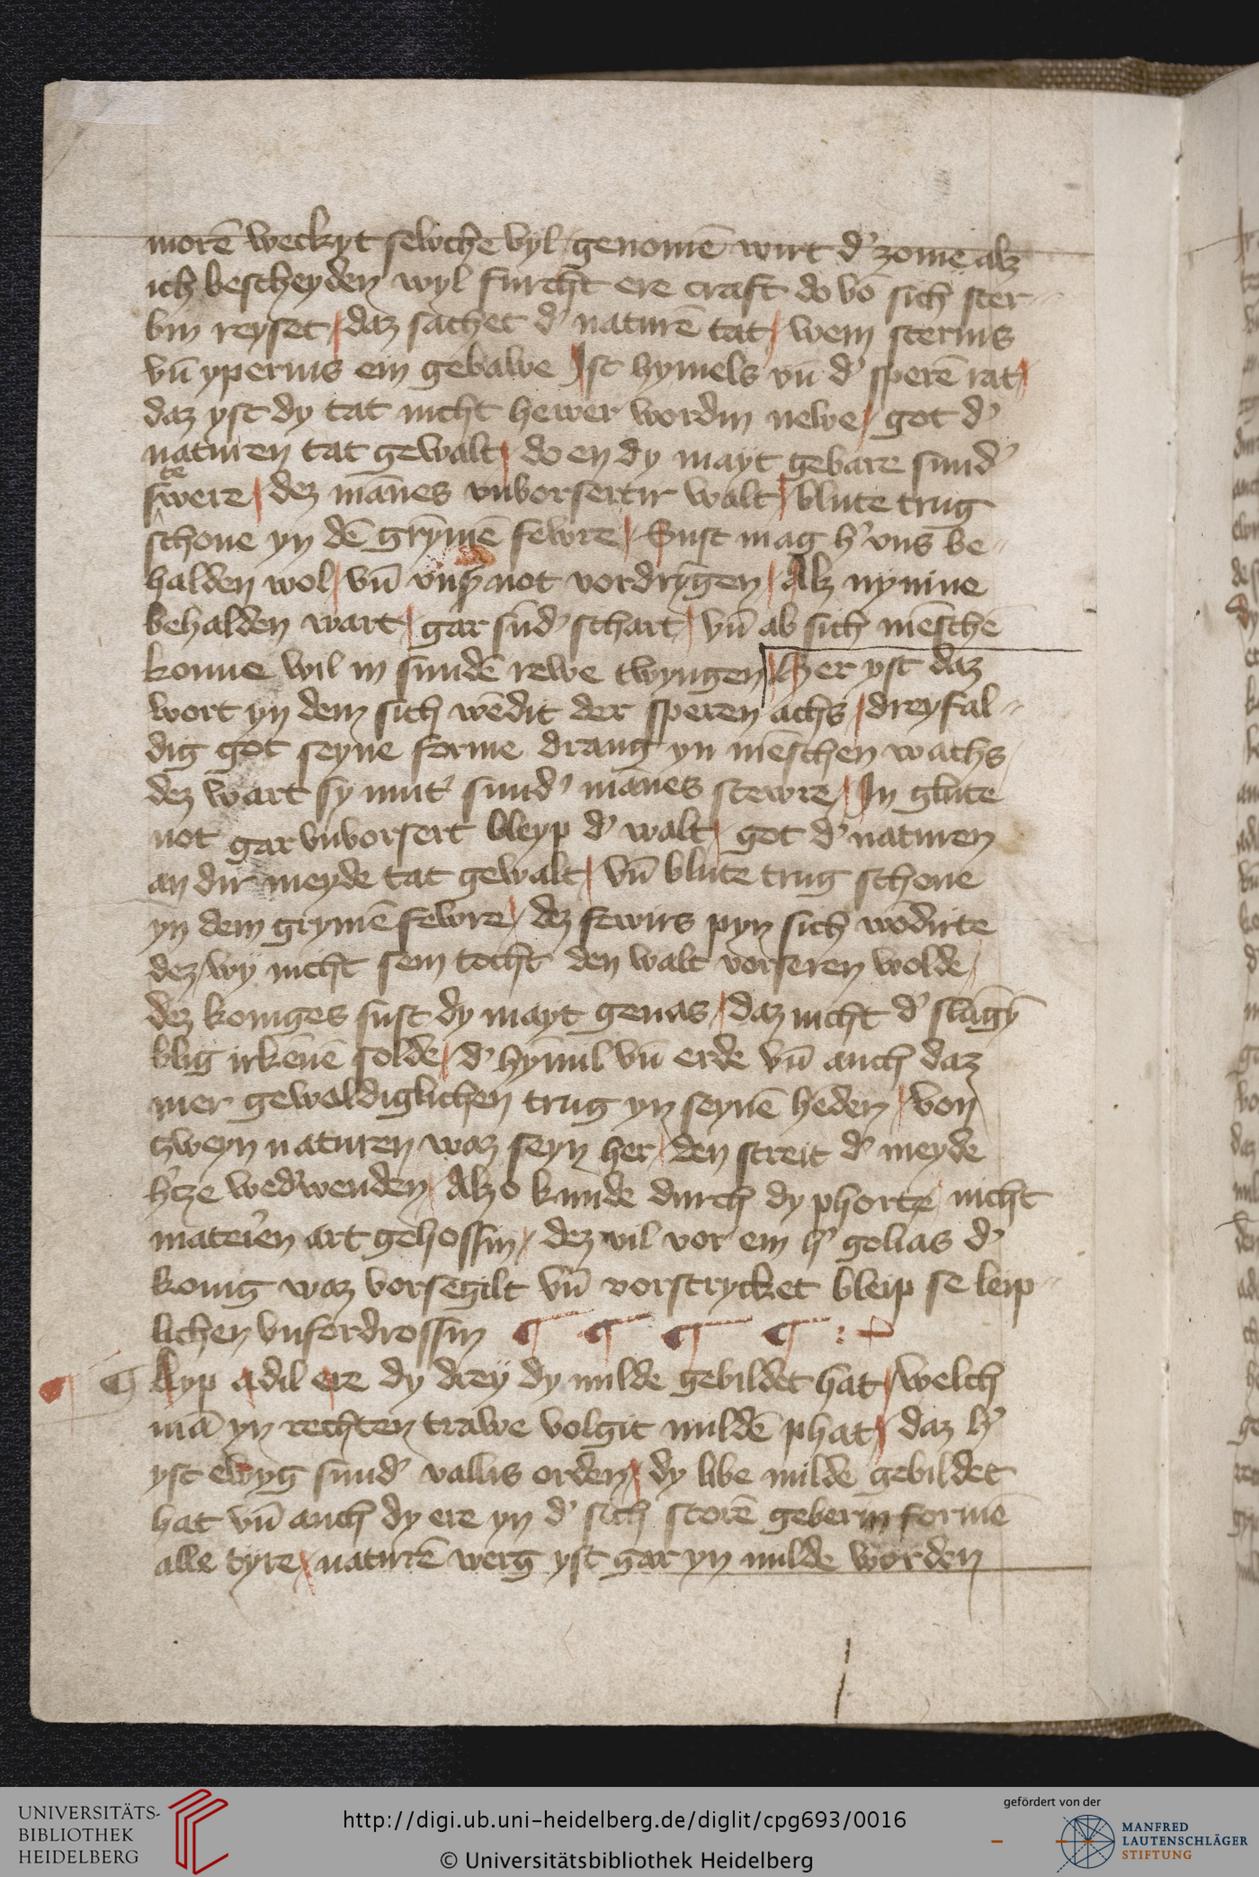 morē weckyt selwchē vyl / genomē wirt d' zome alz
ich bescheyden wyl furcht ere craft do vō sich ster-
bin reyset / daz sachet d' naturē tat / wem sternis
vn̄ ypernis ein gebawe Ist hymels vn̄ d' sperē rat /
daz yst dy tat nicht hewer wordin newe / got d'
naturen tat gewalt / do en dy mayt gebare sund'
swere / dez mānes vnvorsertir walt / blute trug
schone yn dē grȳmē fewre / Sust mag h' vns be-
halden wol / vn̄ vns not vordrīgen / Alz nymme
behalden wart / gar sūd' schart / vn̄ ab sich mēschē
konne wil in sundē rewe twyngen / Her yst daz
wort yn dem sich wēdit der speren achs / dreyfal-
dig got seyne forme drang yn mēschen wachs /
dez wart sy mut' sund' mānes stewre / In glute
not gar vnvorsert bleyp d' walt / got d' naturen
an dir meyde tat gewalt / vn̄ blute trug schone
yn dem grymē fewre / dez fewirs pyn sich wodirte
dez / wy nicht sem tocht den walt vorseren wolde /
dez koniges sust dy mayt genas / daz nicht d' slāgē
blig irkēnē solde / d' hȳmil vn̄ erde vn̄ auch daz
mer gewaldiglichen trug yn seynē hēden / von
tzweyn naturen waz seyn her / den streit d' meyde
h'tze wed'wenden / Alzo kunde durch dy phorte / nicht
mater'en art gehossin / dez wil vor ein h' golias d'
konig waz vorsegilt vn̄ vorstrycket bleip se leip-
lichen vnfordrossin ¶ ¶ ¶ ¶ :
¶ Ayp adil ere dy drey dy milde gebildet hat / welch
mā yn rechten trawe volgit mildē phat / daz h'
yst ewyg sund' vallis orden / dy libe milde gebildet
hat vn̄ auch dy ere yn d' sich storē geberin formē
alle tyre / naturē werg yst gar yn milde worden
UNIVERSITÄTS-
BIBLIOTHEK
HEIDELBERG
http://digi.ub.uni-heidelberg.de/diglit/cpg693/0016
© Universitätsbibliothek Heidelberg
gefördert von der
MANFRED
LAUTENSCHLÄGER
STIFTUNG